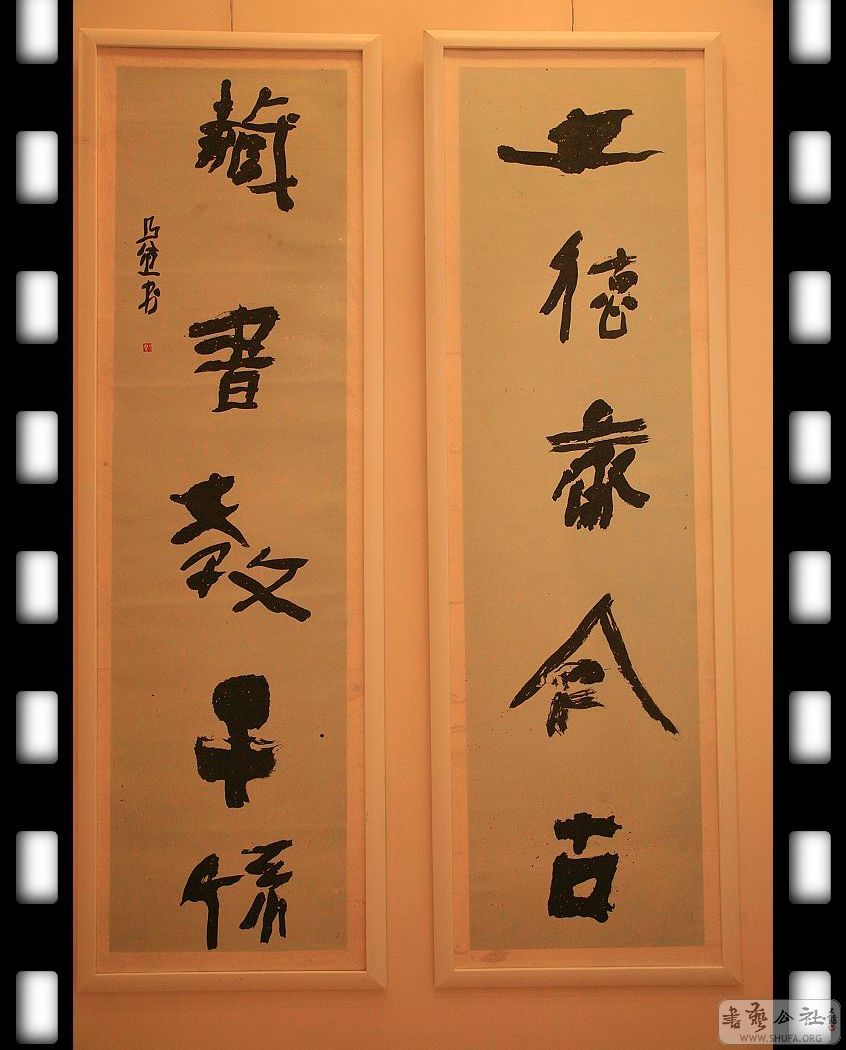 立德齊今古
藏書教子孫
書藝公社
WWW.SHUFA.ORG